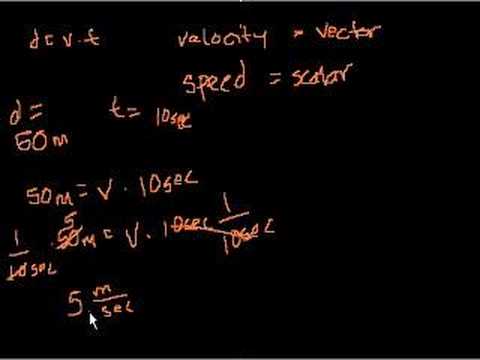 d = v · t    velocity = vector
speed = scalar
d =    t = 10sec
50m
50m = v · 10sec
1/10sec · 5 50m = v · 10sec 1/10sec
5 m/sec